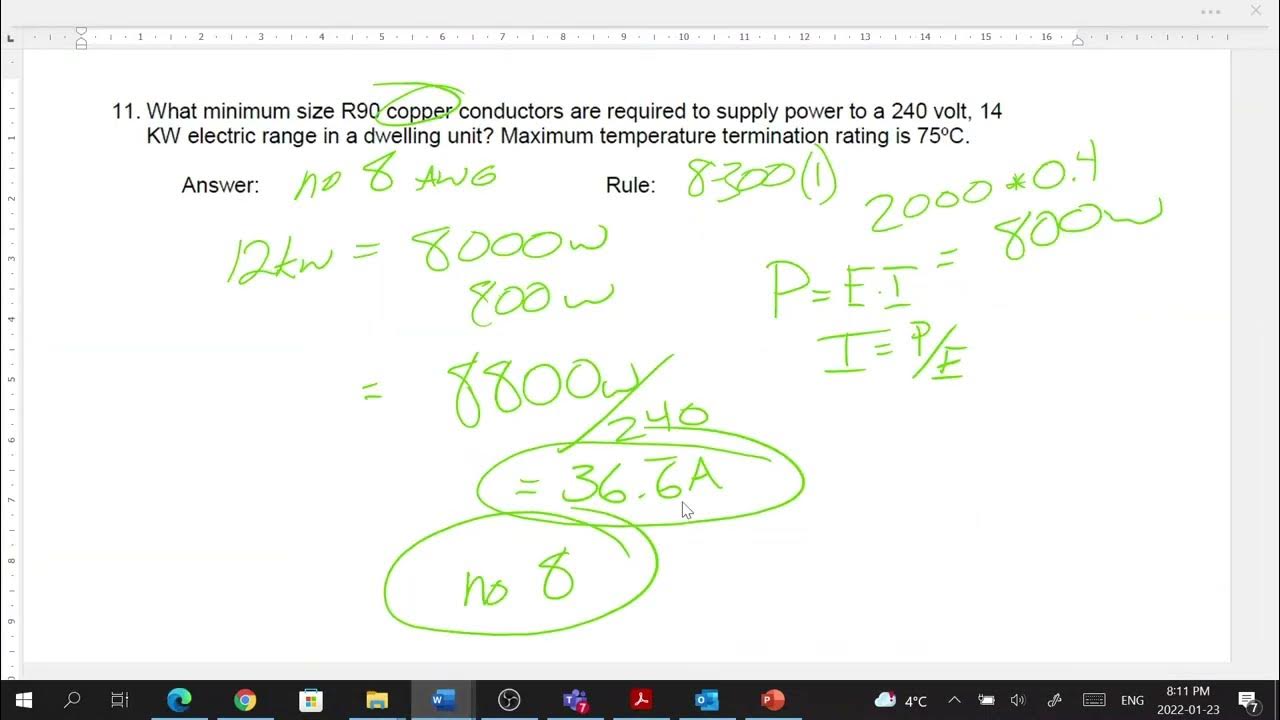 1 2 3 4 5 6 7 8 9 10 11 12 13 14 15 16
11. What minimum size R90 copper conductors are required to supply power to a 240 volt, 14
KW electric range in a dwelling unit? Maximum temperature termination rating is 75ºC.
Answer: no 8 AWG Rule: 8-300(1)
2000 * 0.4
= 800w
12kw = 8000w
800w
P = E.I
I = P/E
= 8800w/240
= 36.6A
no 8
1
2
3
4
5
6
7
8
9
W
7
P
4°C
ENG
8:11 PM
2022-01-23
7